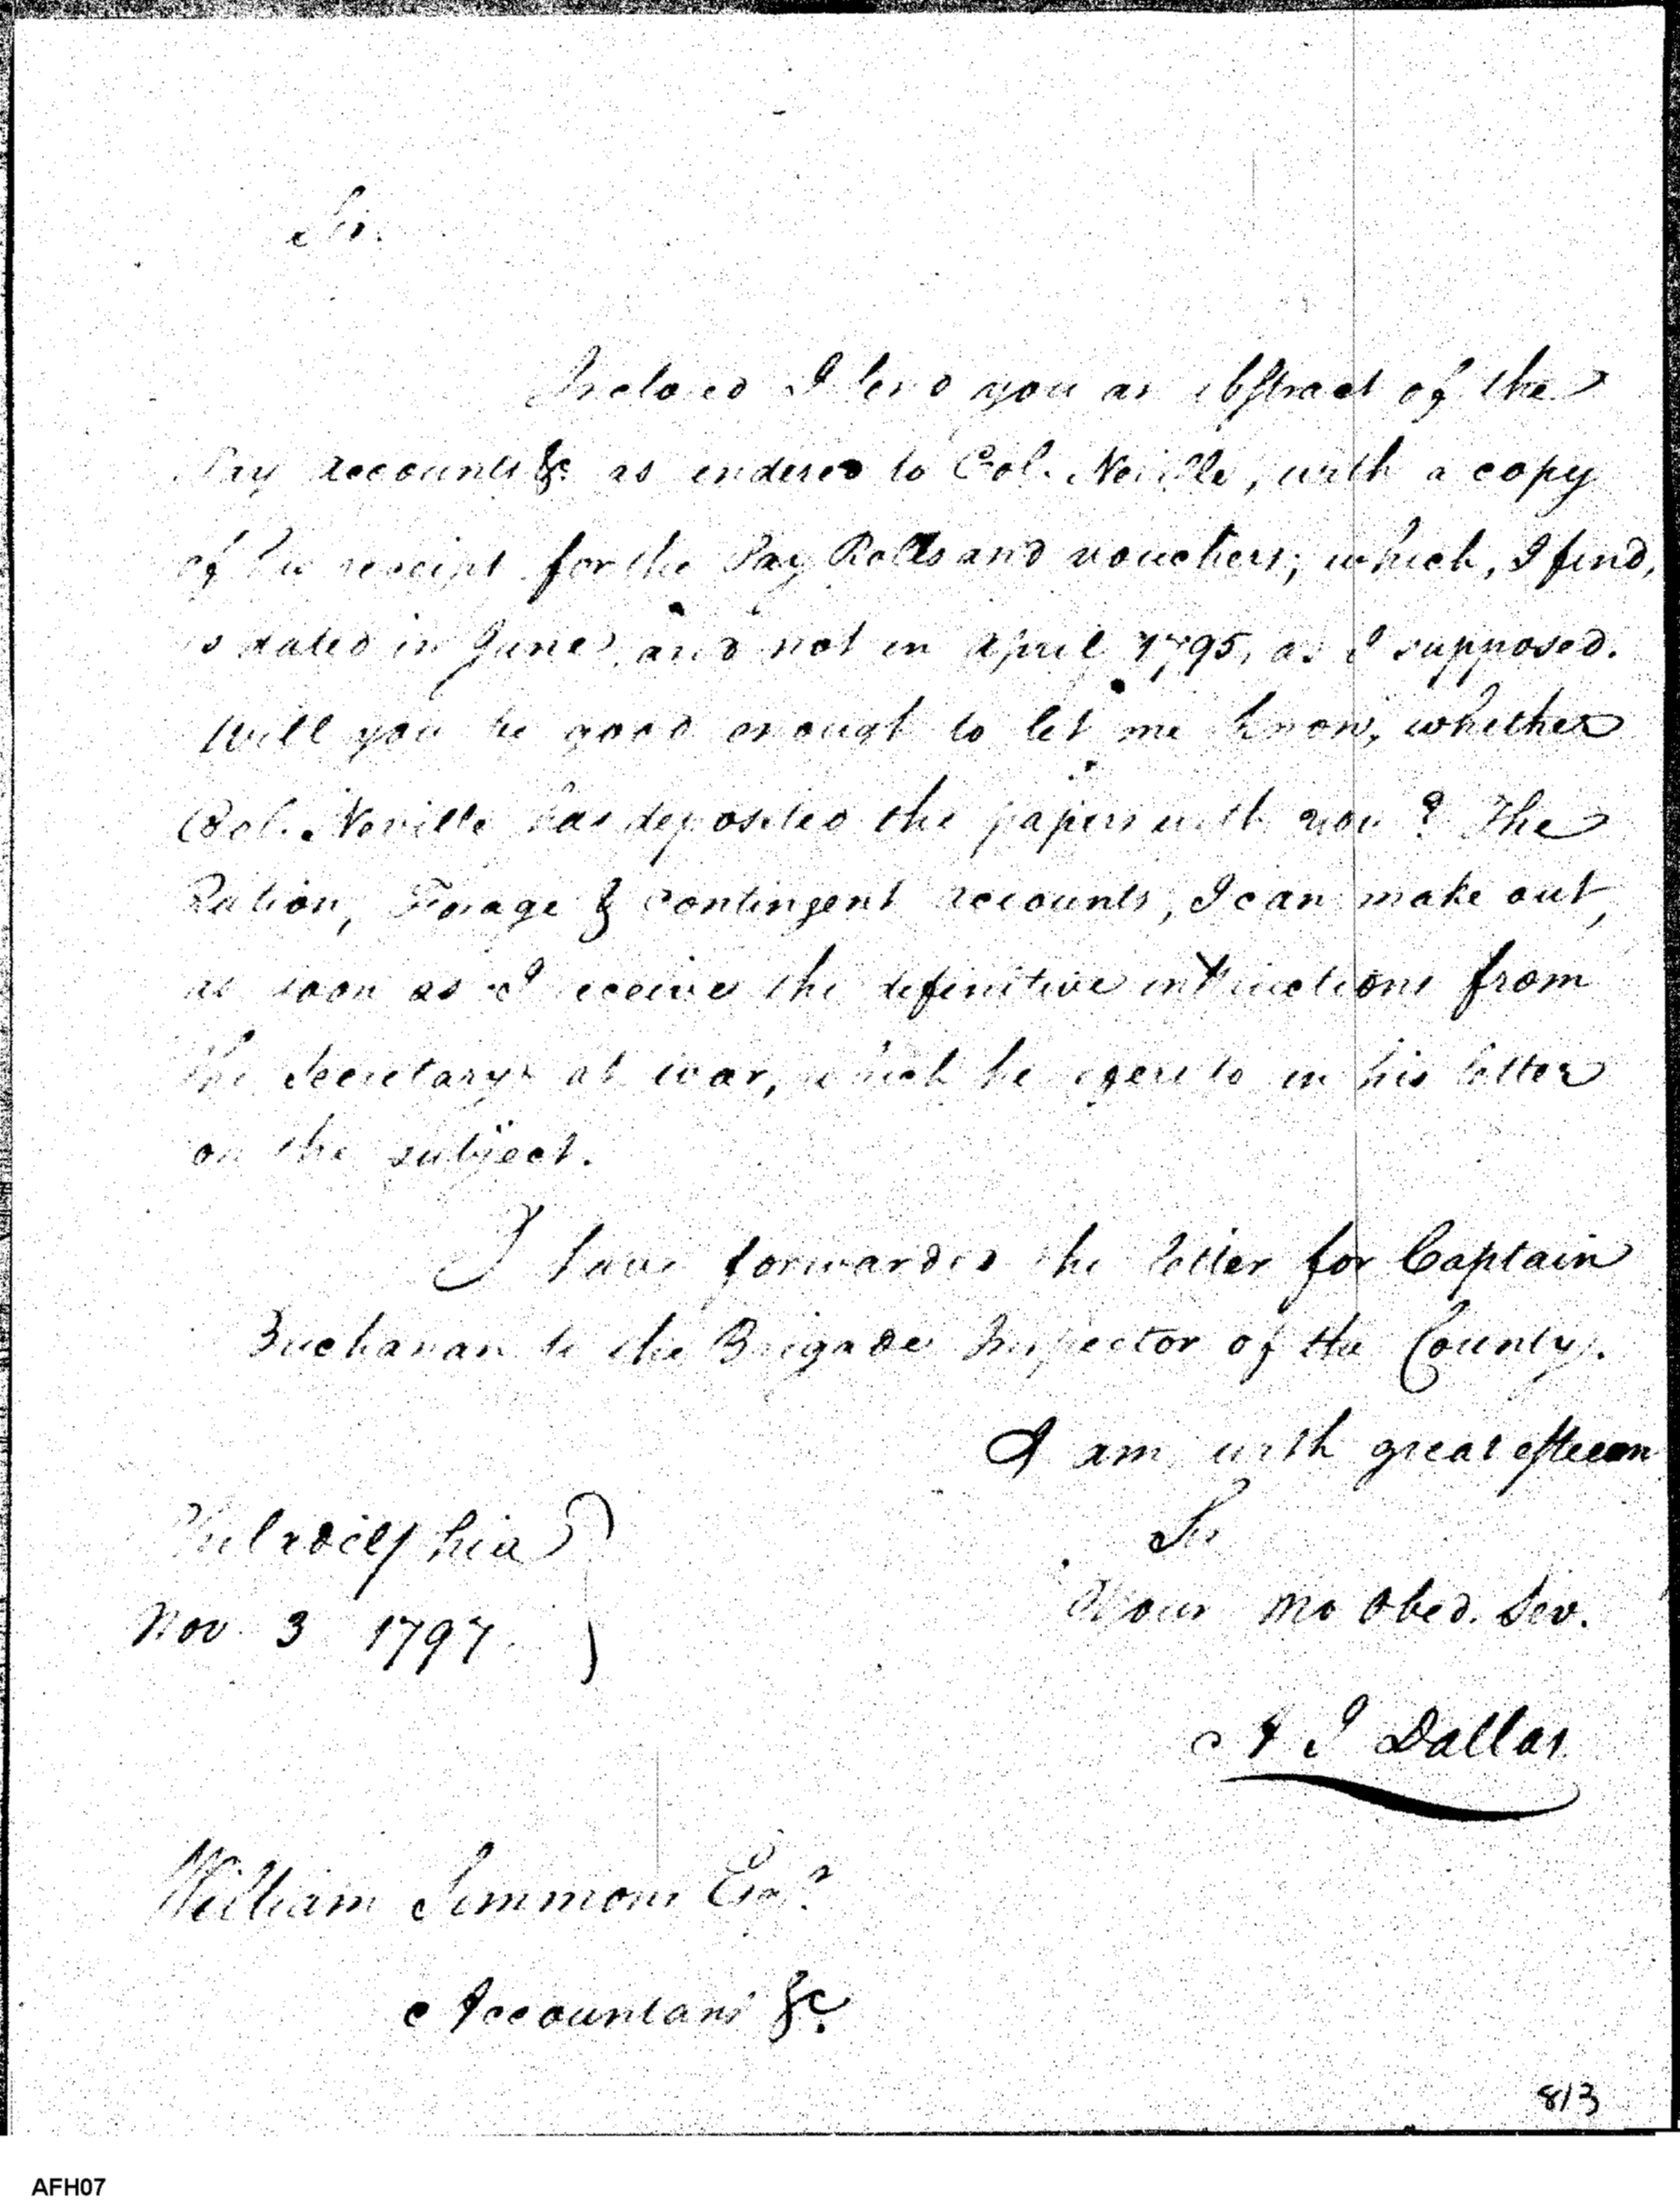 Sir.
Inclosed I send you an abstract of the
Pay accounts &c. as rendered to Col. Neville, with a copy
of his receipt for the Pay Rolls and vouchers; which, I find,
is dated in June and not in April 1795, as I supposed.
Will you be good enough to let me know, whether
Col. Neville has deposited the papers with you? The
Ration, Forage & contingent accounts, I can make out,
as soon as I receive the definitive instructions from
the Secretary at war, which he refers to in his letter
on the subject.
I have forwarded the letter for Captain
Buchanan to the Brigade Inspector of the County.
I am with great esteem
Sir
Your Mo Obed. Ser.
Philadelphia
Nov 3 1797.
A J Dallas
William Simmons Esqr.
Accountant &c.
813
AFH07